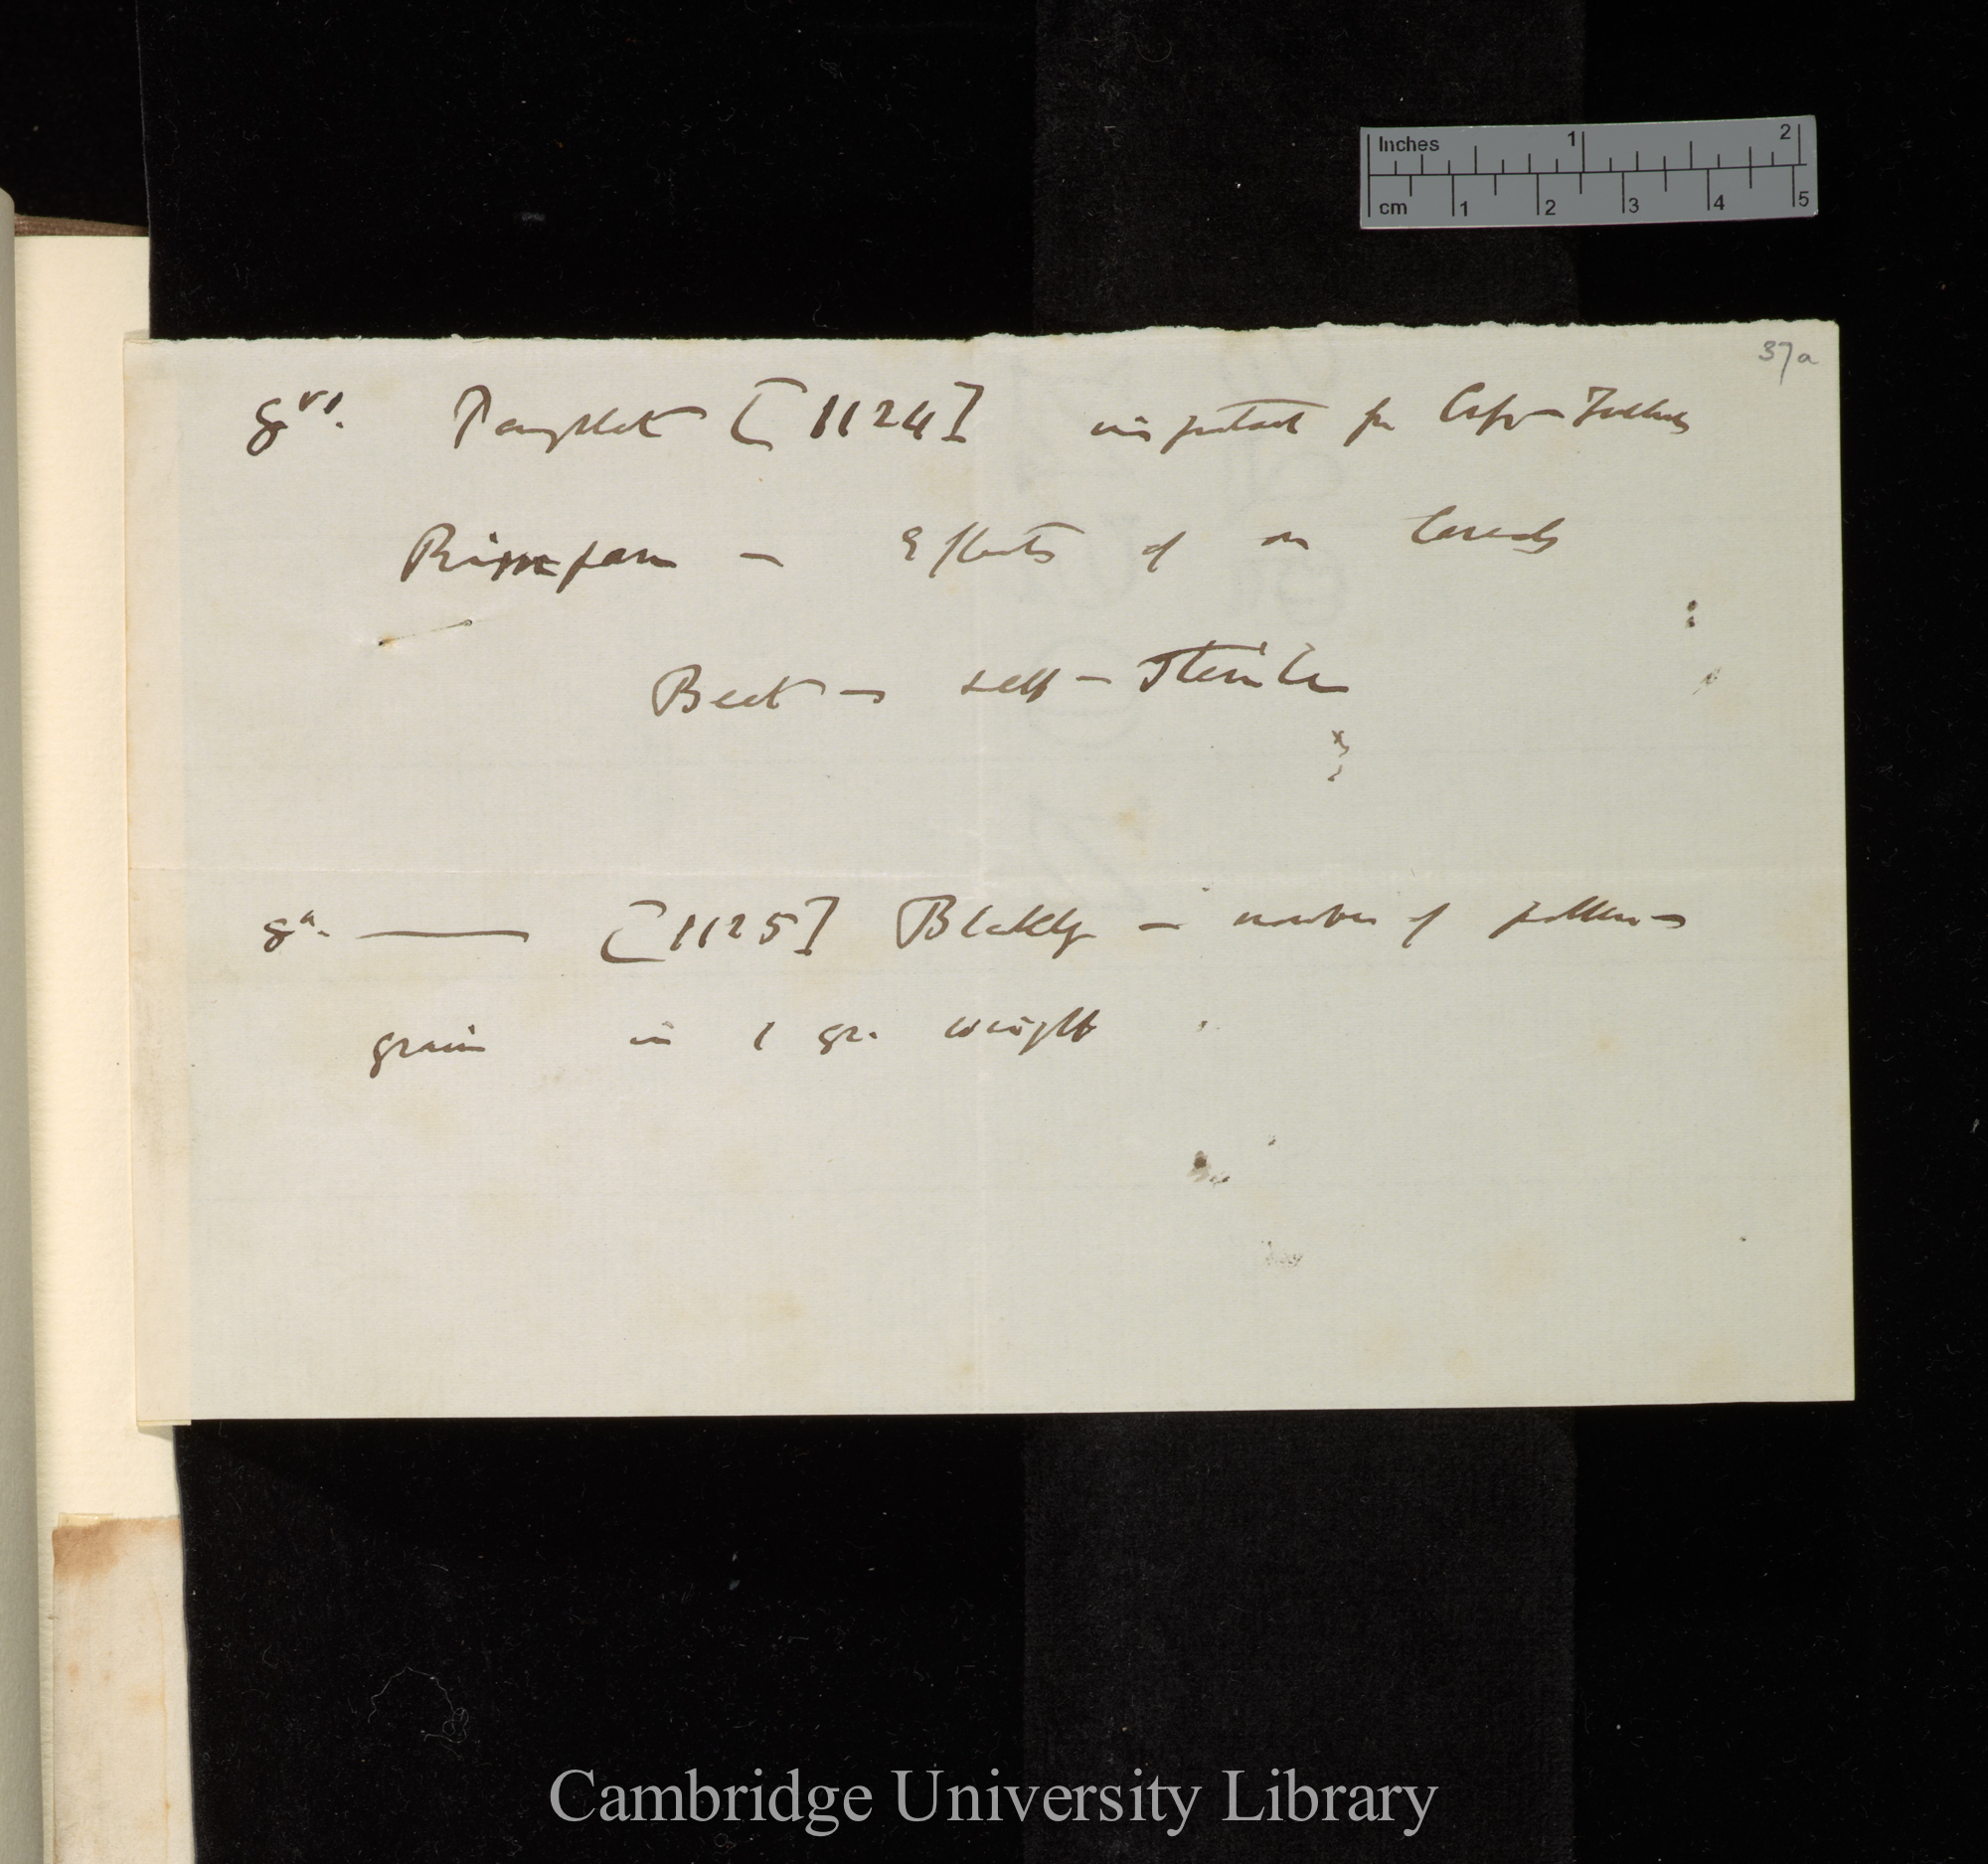 Inches 1 2
cm 1 2 3 4 5
37a
8vo. Pamphlet [1124] important for Cross-Fertiliz
Rimpau — Effects of on Cereals
Beet — self-sterile
8o. ——— [1125] Blackley — number of pollen-
grain in 1 gr. weight
Cambridge University Library